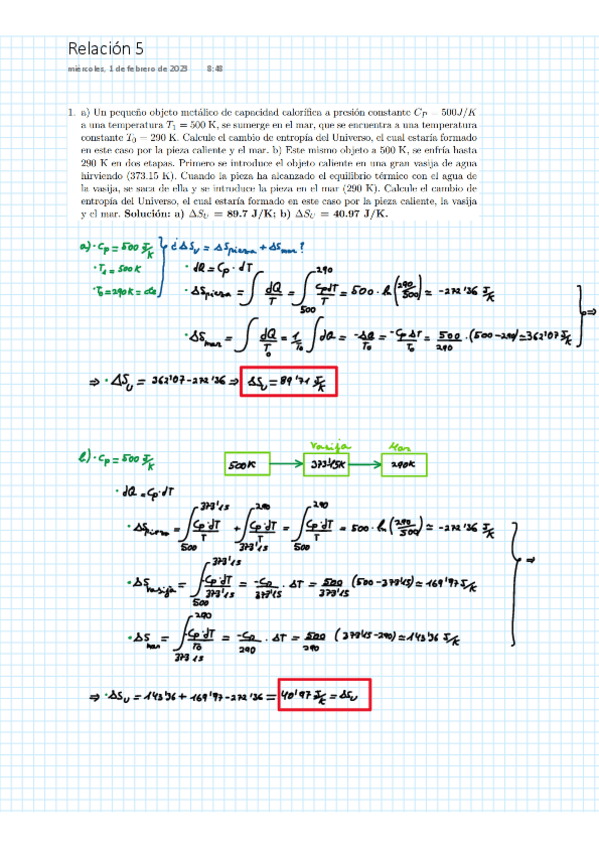 Relación 5
miércoles, 1 de febrero de 2023 8:48
1. a) Un pequeño objeto metálico de capacidad calorífica a presión constante C_P = 500J/K
a una temperatura T_1 = 500 K, se sumerge en el mar, que se encuentra a una temperatura
constante T_0 = 290 K. Calcule el cambio de entropía del Universo, el cual estaría formado
en este caso por la pieza caliente y el mar. b) Este mismo objeto a 500 K, se enfría hasta
290 K en dos etapas. Primero se introduce el objeto caliente en una gran vasija de agua
hirviendo (373.15 K). Cuando la pieza ha alcanzado el equilibrio térmico con el agua de
la vasija, se saca de ella y se introduce la pieza en el mar (290 K). Calcule el cambio de
entropía del Universo, el cual estaría formado en este caso por la pieza caliente, la vasija
y el mar. Solución: a) ΔS_U = 89.7 J/K; b) ΔS_U = 40.97 J/K.
a) · Cp = 500 J/K ¿ΔS_U = ΔS_pieza + ΔS_mar?
· T_1 = 500K · dQ = Cp · dT
· T_0 = 290K = cte · ΔS_pieza = ∫ dQ/T = ∫_500^290 CpdT/T = 500 · ln(290/500) ≃ -272'36 J/K
· ΔS_mar = ∫ dQ/T_0 = 1/T_0 ∫ dQ = -ΔQ/T_0 = -Cp ΔT/T_0 = 500/290 · (500-290) ≃ 362'07 J/K ⇒
⇒ · ΔS_U = 362'07 - 272'36 ⇒ ΔS_U = 89'71 J/K
b) · Cp = 500 J/K Vasija Mar
500K → 373'15K → 290K
· dQ = Cp·dT
· ΔS_pieza = ∫_500^373'15 Cp·dT/T + ∫_373'15^290 Cp·dT/T = ∫_500^290 Cp·dT/T = 500 · ln(290/500) ≃ -272'36 J/K
· ΔS_vasija = ∫_500^373'15 -Cp·dT/373'15 = -Cp/373'15 · ΔT = 500/373'15 (500-373'15) ≃ 169'97 J/K ⇒
· ΔS_mar = ∫_373'15^290 -Cp·dT/T_0 = -Cp/290 · ΔT = 500/290 (373'15-290) ≃ 143'36 J/K
⇒ · ΔS_U = 143'36 + 169'97 - 272'36 = 40'97 J/K = ΔS_U